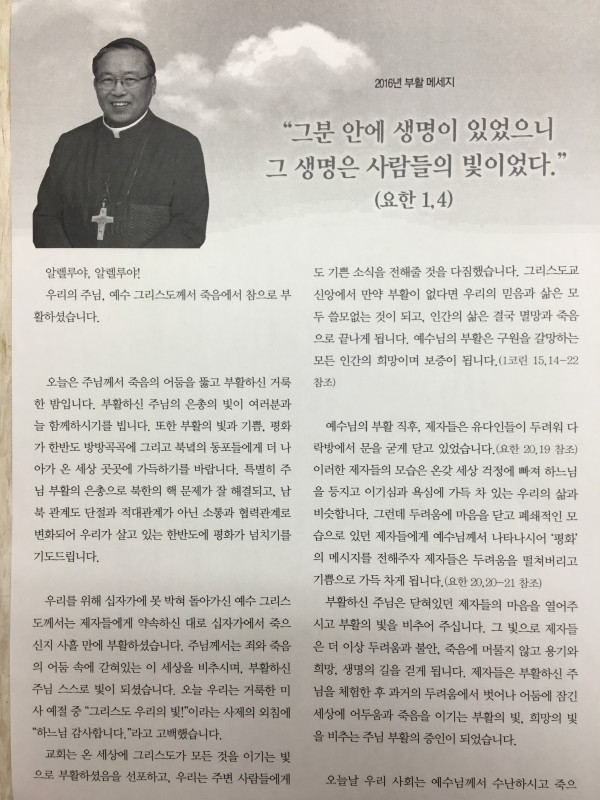 2016년 부활 메세지
“그분 안에 생명이 있었으니
그 생명은 사람들의 빛이었다.”
(요한 1,4)
알렐루야, 알렐루야!
우리의 주님, 예수 그리스도께서 죽음에서 참으로 부
활하셨습니다.
오늘은 주님께서 죽음의 어둠을 뚫고 부활하신 거룩
한 밤입니다. 부활하신 주님의 은총의 빛이 여러분과
늘 함께하시기를 빕니다. 또한 부활의 빛과 기쁨, 평화
가 한반도 방방곡곡에 그리고 북녘의 동포들에게 더 나
아가 온 세상 곳곳에 가득하기를 바랍니다. 특별히 주
님 부활의 은총으로 북한의 핵 문제가 잘 해결되고, 남
북 관계도 단절과 적대관계가 아닌 소통과 협력관계로
변화되어 우리가 살고 있는 한반도에 평화가 넘치기를
기도드립니다.
우리를 위해 십자가에 못 박혀 돌아가신 예수 그리스
도께서는 제자들에게 약속하신 대로 십자가에서 죽으
신지 사흘 만에 부활하셨습니다. 주님께서는 죄와 죽음
의 어둠 속에 갇혀있는 이 세상을 비추시며, 부활하신
주님 스스로 빛이 되셨습니다. 오늘 우리는 거룩한 미
사 예절 중 “그리스도 우리의 빛!”이라는 사제의 외침에
“하느님 감사합니다.”라고 고백했습니다.
교회는 온 세상에 그리스도가 모든 것을 이기는 빛
으로 부활하셨음을 선포하고, 우리는 주변 사람들에게
도 기쁜 소식을 전해줄 것을 다짐했습니다. 그리스도교
신앙에서 만약 부활이 없다면 우리의 믿음과 삶은 모
두 쓸모없는 것이 되고, 인간의 삶은 결국 멸망과 죽음
으로 끝나게 됩니다. 예수님의 부활은 구원을 갈망하는
모든 인간의 희망이며 보증이 됩니다.(1코린 15,14-22
참조)
예수님의 부활 직후, 제자들은 유다인들이 두려워 다
락방에서 문을 굳게 닫고 있었습니다.(요한 20,19 참조)
이러한 제자들의 모습은 온갖 세상 걱정에 빠져 하느님
을 등지고 이기심과 욕심에 가득 차 있는 우리의 삶과
비슷합니다. 그런데 두려움에 마음을 닫고 폐쇄적인 모
습으로 있던 제자들에게 예수님께서 나타나시어 ‘평화’
의 메시지를 전해주자 제자들은 두려움을 떨쳐버리고
기쁨으로 가득 차게 됩니다.(요한 20,20-21 참조)
부활하신 주님은 닫혀있던 제자들의 마음을 열어주
시고 부활의 빛을 비추어 주십니다. 그 빛으로 제자들
은 더 이상 두려움과 불안, 죽음에 머물지 않고 용기와
희망, 생명의 길을 걷게 됩니다. 제자들은 부활하신 주
님을 체험한 후 과거의 두려움에서 벗어나 어둠에 잠긴
세상에 어두움과 죽음을 이기는 부활의 빛, 희망의 빛
을 비추는 주님 부활의 증인이 되었습니다.
오늘날 우리 사회는 예수님께서 수난하시고 죽으